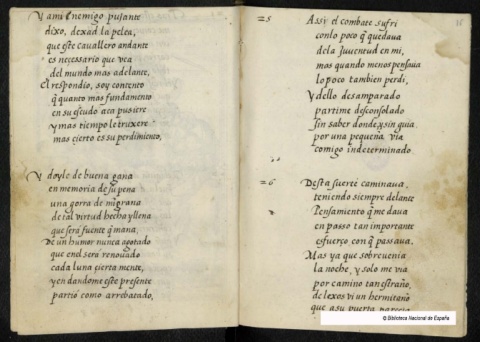 Y a mi Enemigo pujante
dixo, dexad la pelea,
que este cavallero andante
es necessario que vea
del mundo mas adelante,
El respondio, soy contento
q̃ quanto mas fundamento
en su estudo aca pusiere
y mas tiempo le truxere
mas cierto es su perdimiento,
Y doyle de buena gana
en memoria de su pena
una gorra de migrana
de tal virtud hecha y llena
que será fuente q̃ mana,
De un humor nunca agotado
que en el será renovado
cada luna cierta mente,
y en dandome este presente
partió como arrebatado,
25
Assi el combate sufri
con lo poco q̃ quedava
de la Juventud en mi,
mas quando menos pensava
lo poco tambien perdi,
Y dello desamparado
partime desconsolado
sin saber donde y sin guia
por una pequeña via
comigo indeterminado.
26
Desta suerte caminava,
teniendo siempre delante
Pensamiento q̃ me dava
en passo tan importante
esfuerço con q̃ passava.
Mas ya que sobrevenia
la noche, y solo me via
por camino tan estraño,
de lexos vi un hermitaño
que a su puerta parecia
© Biblioteca Nacional de España